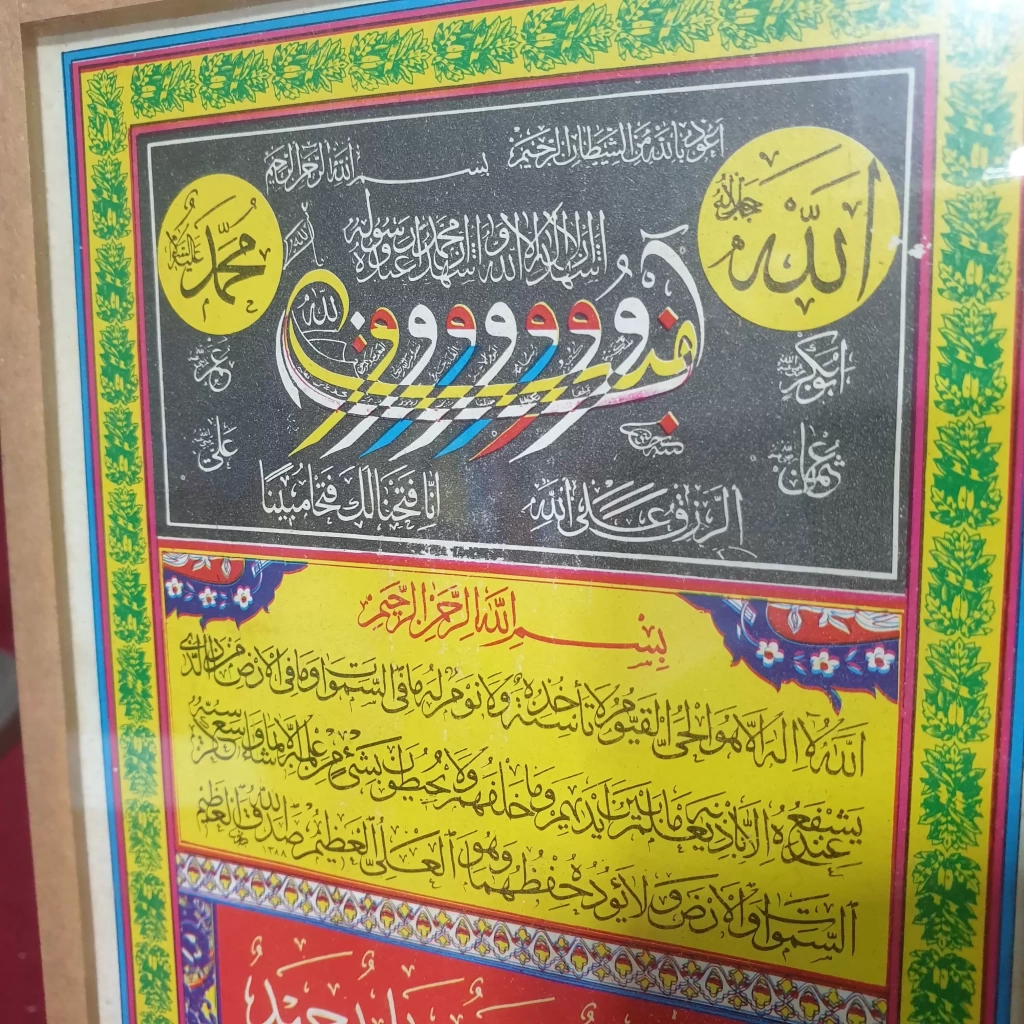 اعوذ بالله من الشيطان الرجيم
بسم الله الرحمن الرحيم
الله
جل جلاله
محمد
عليه السلام
اشهد ان لا اله الا الله و اشهد ان محمدا عبده و رسوله
الله
ابوبكر
عمر
عثمان
على
الرزق على الله
انا فتحنا لك فتحا مبينا
بسم الله الرحمن الرحيم
الله لا اله الا هو الحى القيوم لا تأخذه سنة ولا نوم له ما فى السموات وما فى الارض من ذا الذى
يشفع عنده الا باذنه يعلم ما بين ايديهم وما خلفهم ولا يحيطون بشئ من علمه الا بما شاء وسع كرسيه
السموات والارض ولا يؤده حفظهما وهو العلى العظيم صدق الله العظيم
١٣٨٨